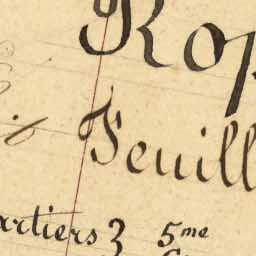 Rop
Feuill
artiers 3 5me